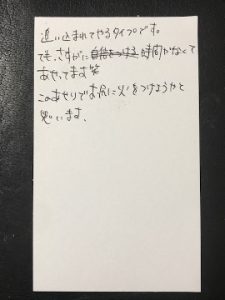 追い込まれてやるタイプです。
でも、さすがに時間がなくて
あせってます笑
このあせりでお尻に火をつけようかと
思います、